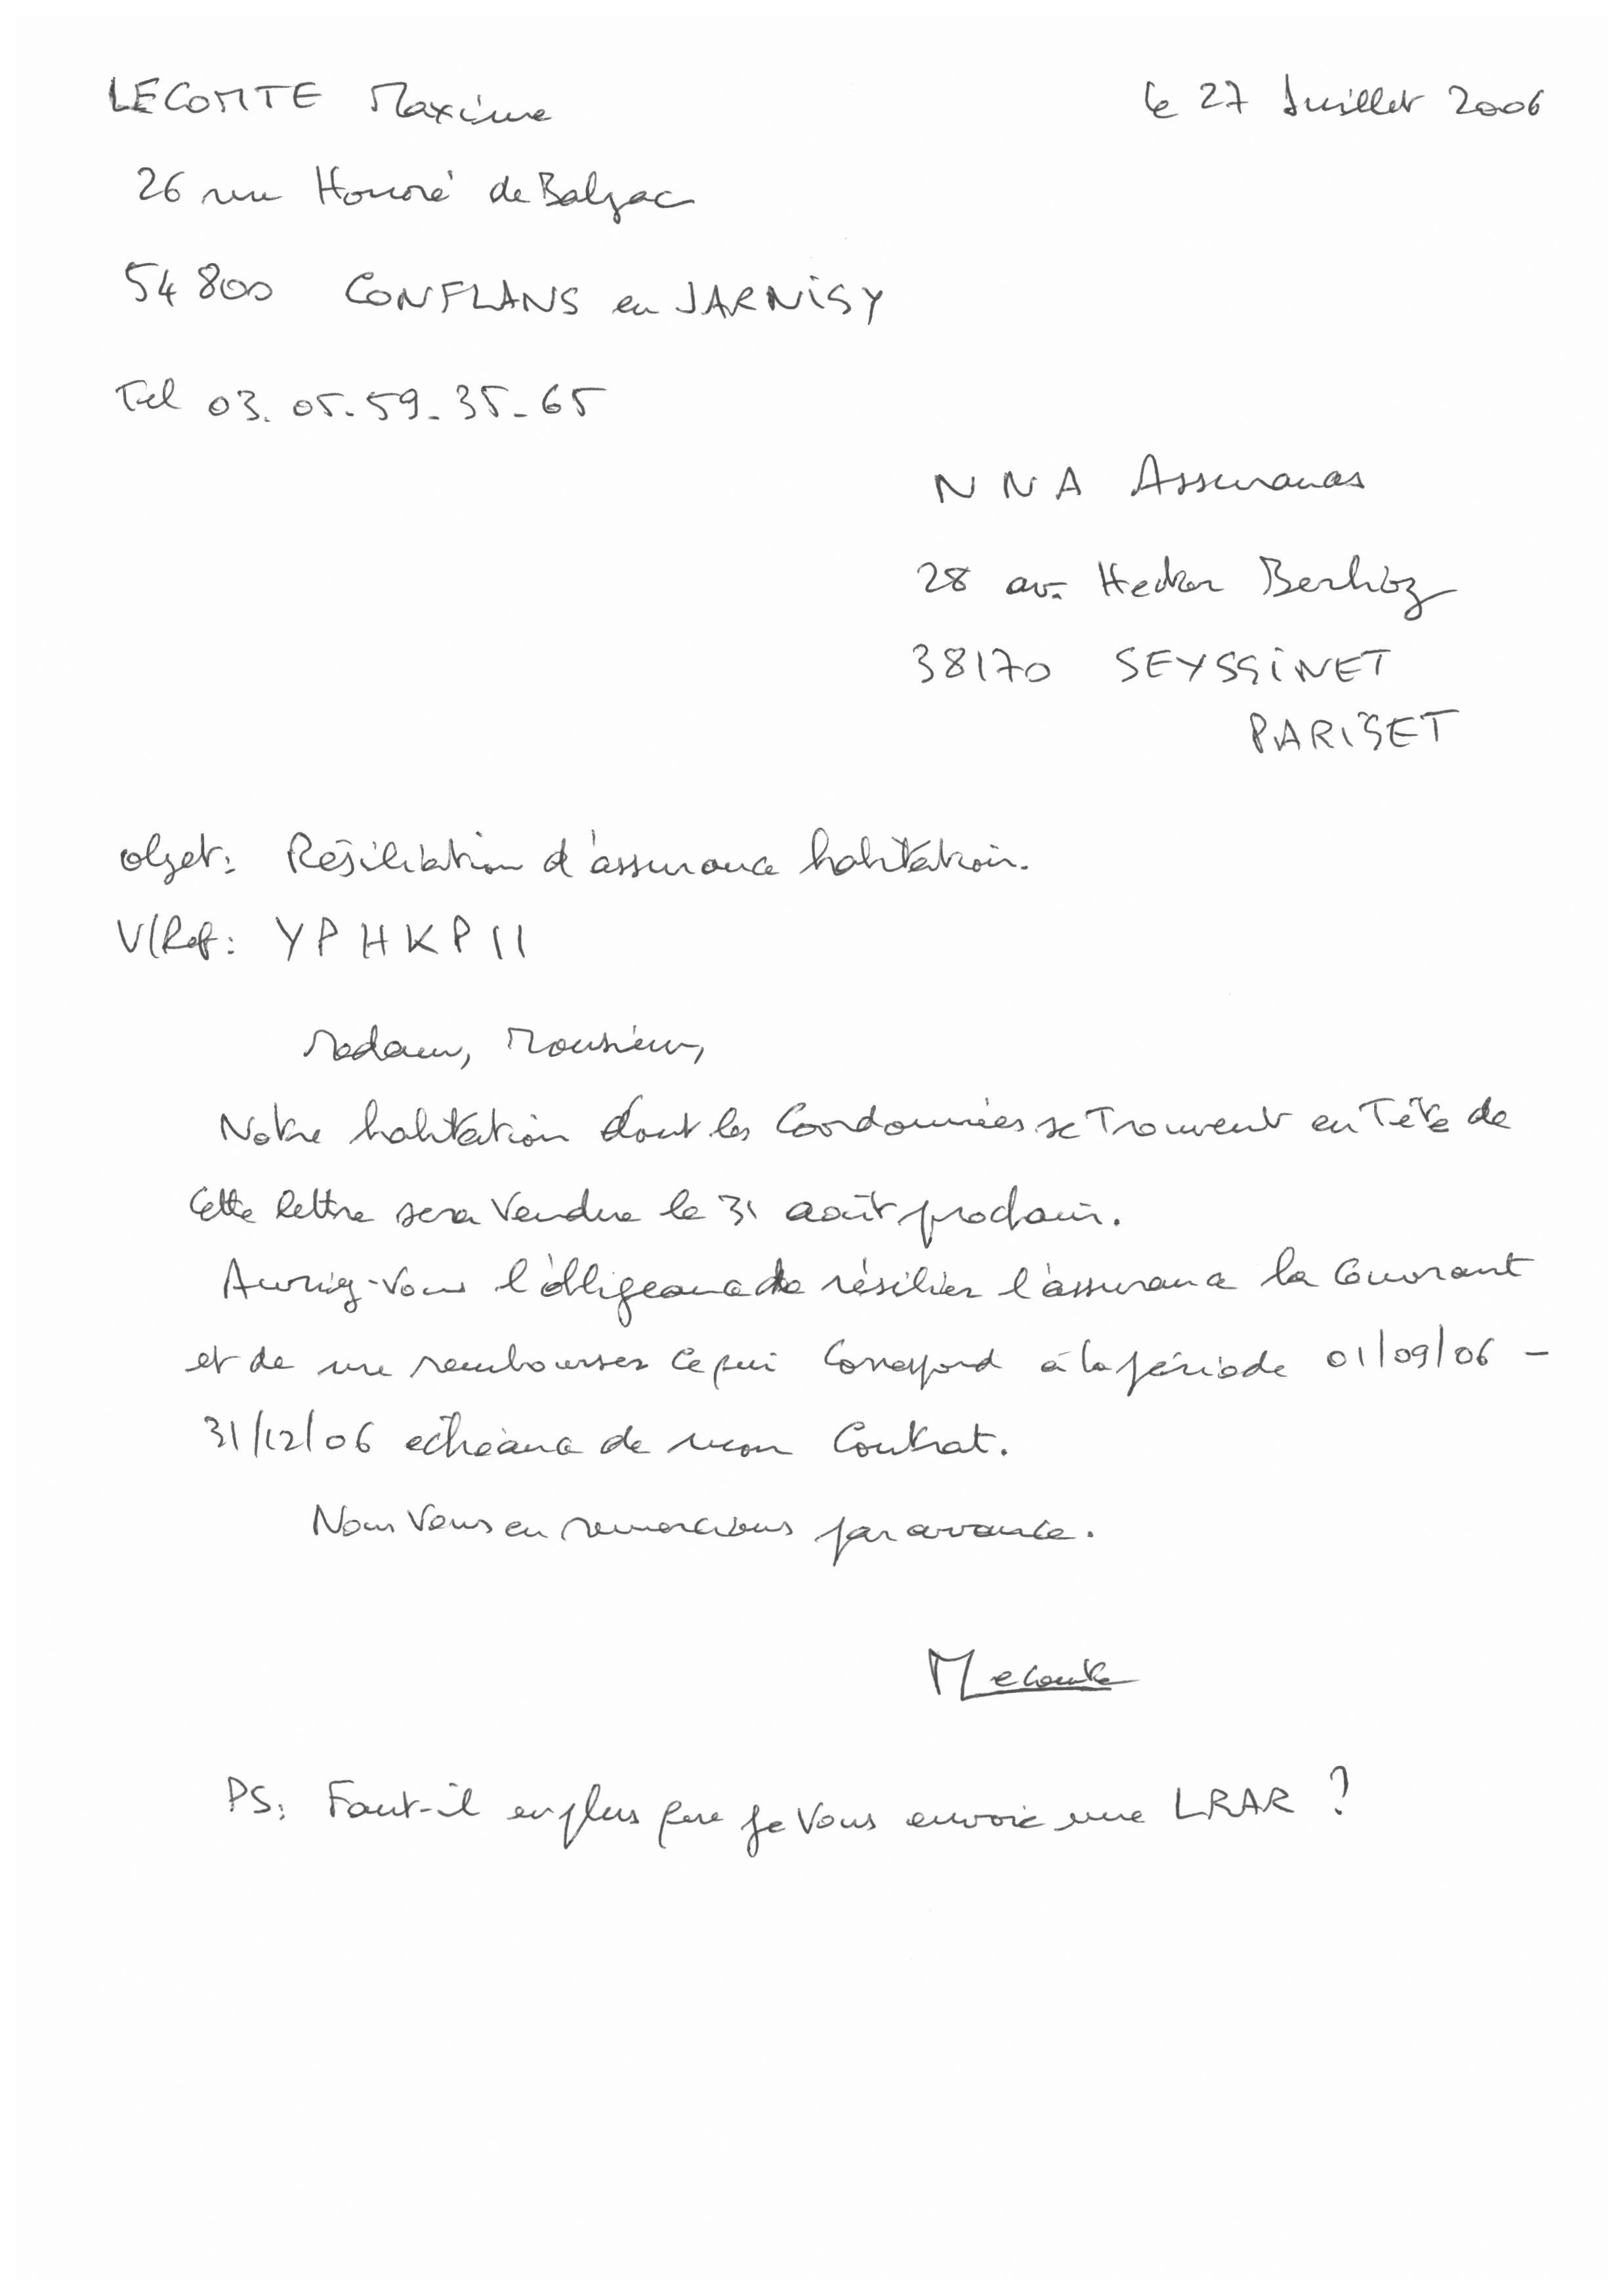 LECOMTE Maxime
le 27 Juillet 2006
26 rue Honoré de Balzac
54 800 CONFLANS en JARNiSY
Tel 03. 05. 59. 35. 65
NNA Assurances
28 av. Hector Berlioz
38170 SEYSSiNET
PARiSET
objet: Résiliation d'assurance habitation.
V/Ref: YPHKP11
Madame, Monsieur,
Notre habitation dont les Coordonnées se Trouvent en Tête de
Cette lettre sera Vendue le 31 août prochain.
Auriez-Vous l'obligeance de résilier l'assurance la couvrant
et de me rembourser ce qui Correspond à la période 01/09/06 -
31/12/06 echéance de mon Contrat.
Nous Vous en remercions par avance.
MLecomte
PS: Faut-il en plus que je Vous envoie une LRAR ?